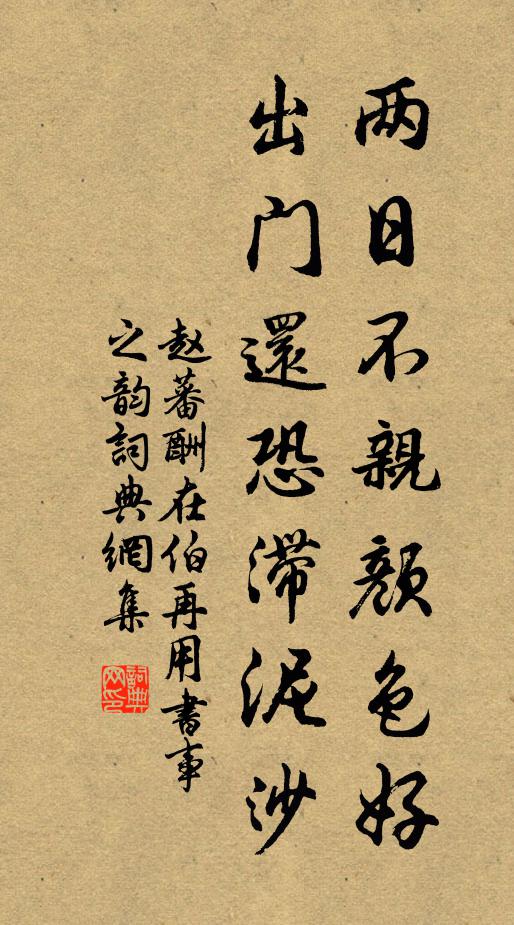 两日不親顔色好
出門還恐滞泥沙
赵蕃酬在伯再用書事
之韵詞典網集
詞典网印